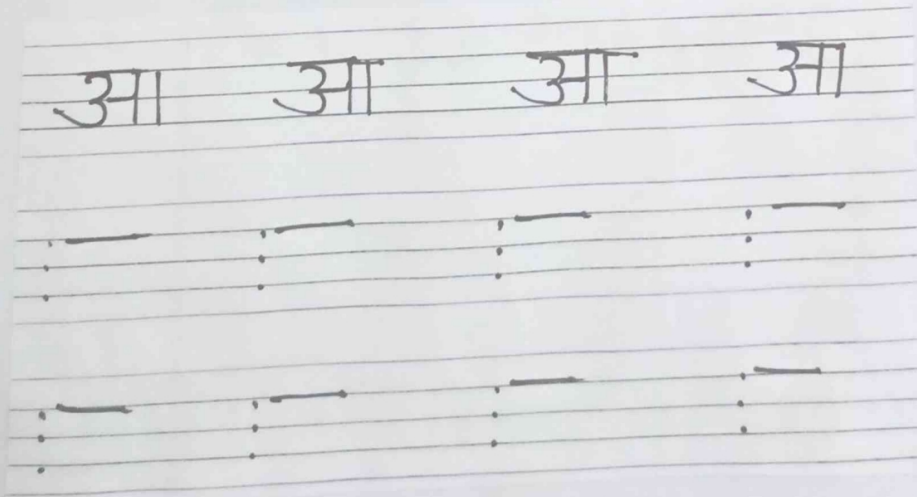 आ आ आ आ